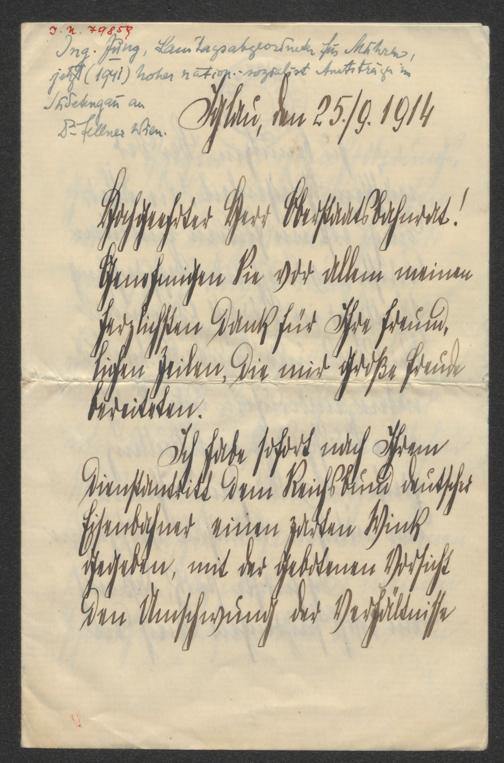 I. N. 79859
Ing. Jung, Landtagsabgeordneter für Mähren,
jetzt (1941) hoher nation.-sozialist. Amtsträger im
Sudetengau an
Dr. Fellner Wien.
Iglau, den 25./9. 1914
Hochgeehrter Herr Oberstaatsbahnrat!
Genehmigen Sie vor allem meinen
herzlichsten Dank für Ihre freund-
lichen Zeilen, die mir große Freude
bereiteten.
Ich habe sofort nach Ihrem
Dienstantritt dem Reichsbund deutscher
Eisenbahner einen zarten Wink
gegeben, mit der gebotenen Vorsicht
den Umschwung der Verhältnisse